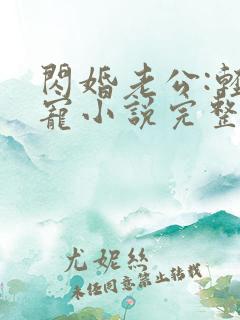 閃婚老公:輕
寵小說完整
尤妮絲
未经同意禁止转载